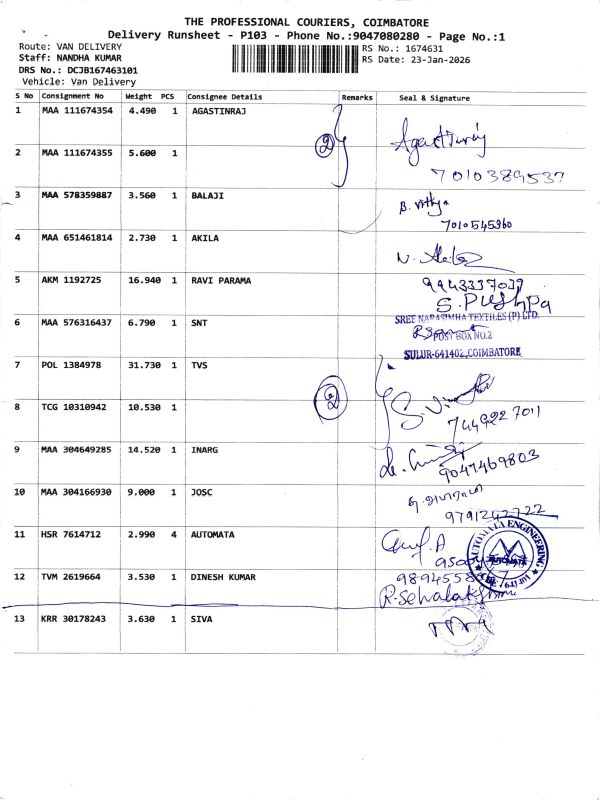 THE PROFESSIONAL COURIERS, COIMBATORE
Delivery Runsheet - P103 - Phone No.:9047080280 - Page No.:1
Route: VAN DELIVERY
RS No.: 1674631
Staff: NANDHA KUMAR
RS Date: 23-Jan-2026
DRS No.: DCJB167463101
Vehicle: Van Delivery
S No Consignment No Weight PCS Consignee Details Remarks Seal & Signature
1 MAA 111674354 4.490 1 AGASTINRAJ
2
2 MAA 111674355 5.600 1
7010389537
3 MAA 578359887 3.560 1 BALAJI B. Vithya
7010545960
4 MAA 651461814 2.730 1 AKILA N. Akila
5 AKM 1192725 16.940 1 RAVI PARAMA 9943337037
S. Pushpa
6 MAA 576316437 6.790 1 SNT SREE NARASIMHA TEXTILES (P) LTD.
POST BOX NO.2
SULUR-641402, COIMBATORE
7 POL 1384978 31.730 1 TVS
2
8 TCG 10310942 10.530 1
7449227011
9 MAA 304649285 14.520 1 INARG
9047469803
10 MAA 304166930 9.000 1 JOSC
9791242722
11 HSR 7614712 2.990 4 AUTOMATA
AUTOMATA ENGINEERING
12 TVM 2619664 3.530 1 DINESH KUMAR 9894558
13 KRR 30178243 3.630 1 SIVA